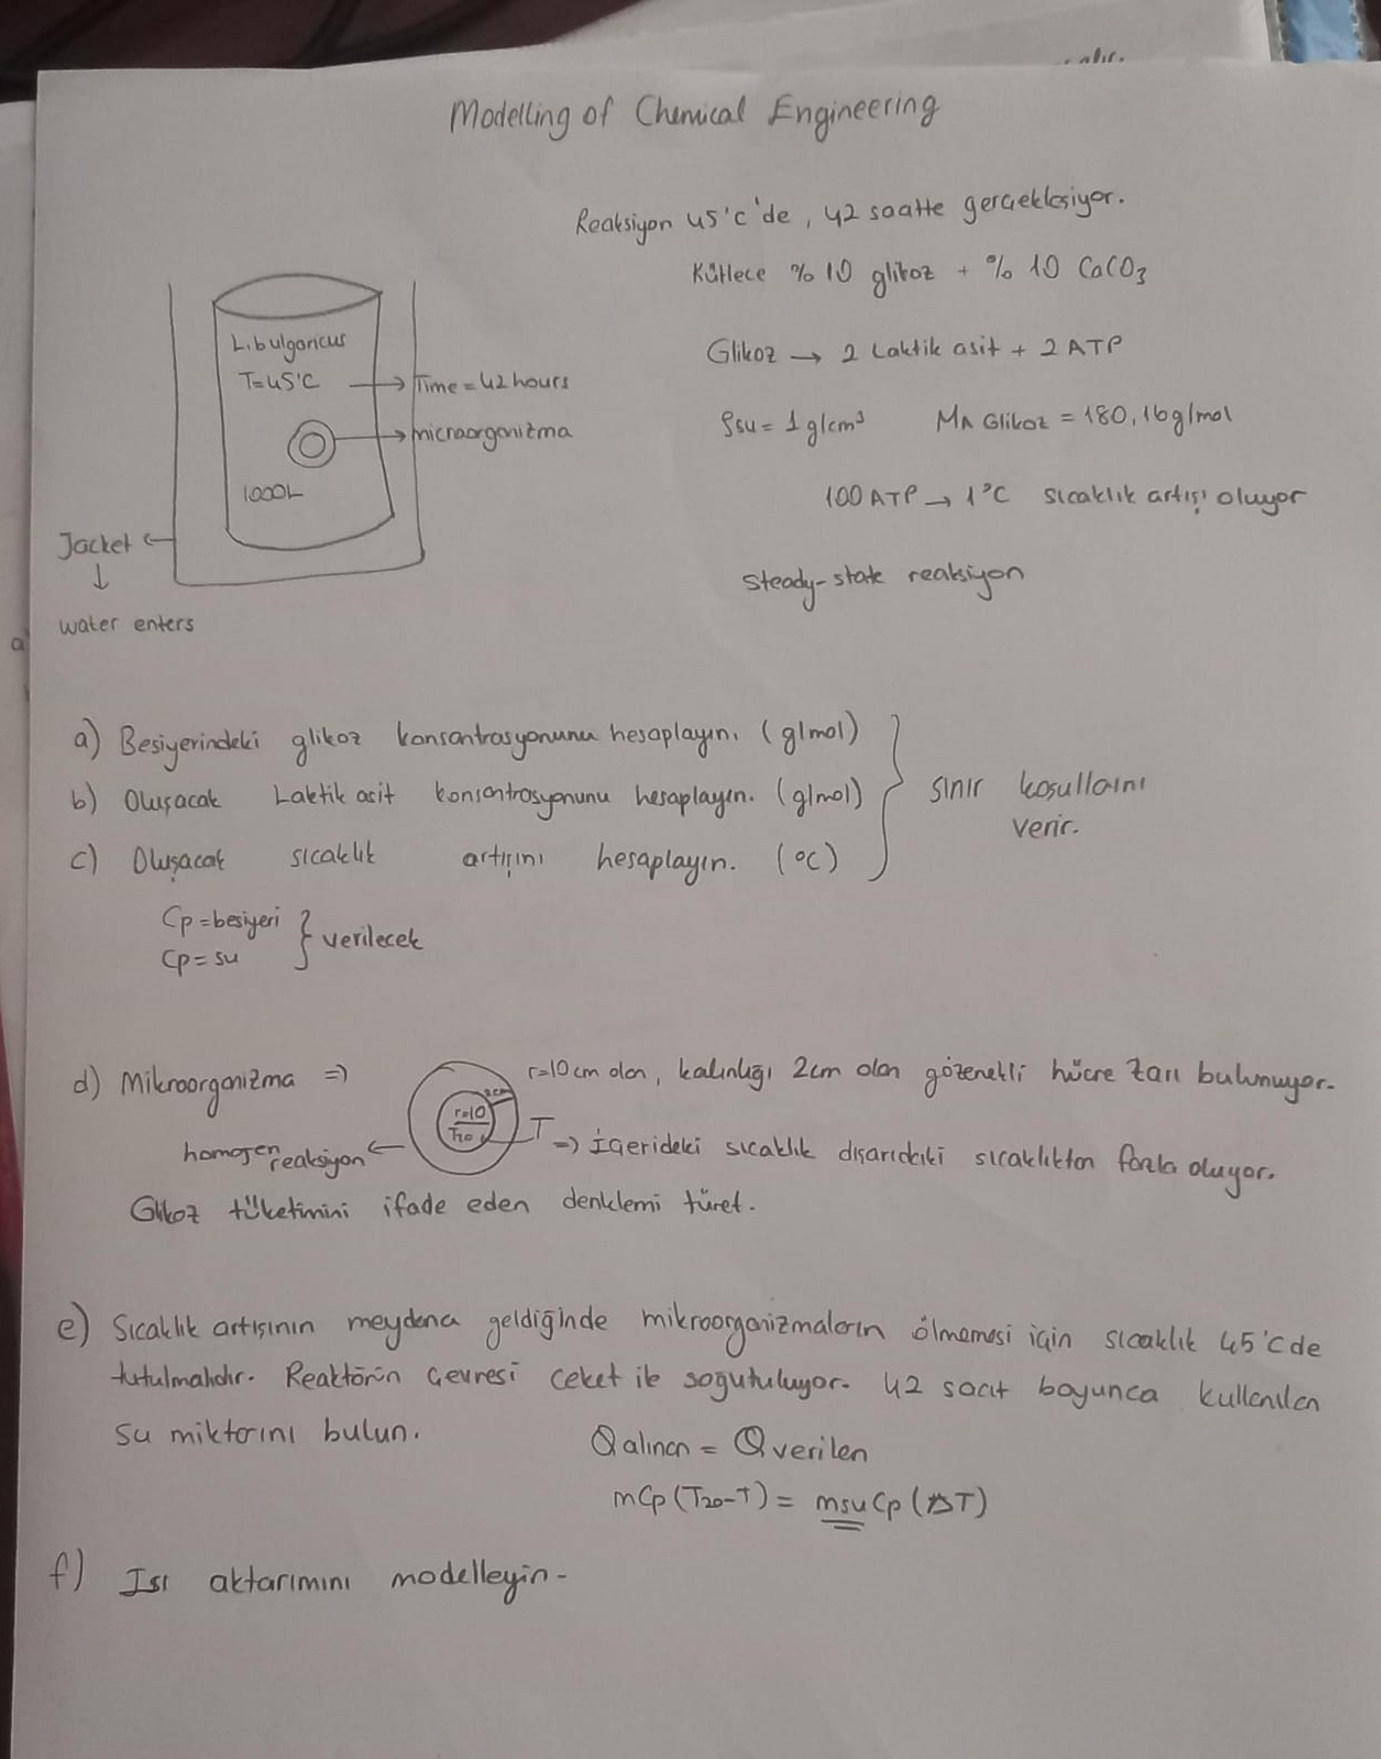 alır.
Modelling of Chemical Engineering
Reaksiyon 45°C'de, 42 saatte gerçekleşiyor.
Kütlece %10 glikoz + %10 CaCO3
Glikoz → 2 Laktik asit + 2 ATP
ρsu = 1 g/cm³ MA Glikoz = 180,16g/mol
100 ATP → 1°C sıcaklık artışı oluyor
Steady-state reaksiyon
L.bulgaricus
T=45°C → Time = 42 hours
→ microorganizma
1000L
Jacket ←
↓
water enters
a) Besiyerindeki glikoz konsantrasyonunu hesaplayın. (g/mol)
b) Oluşacak Laktik asit konsantrasyonunu hesaplayın. (g/mol)
c) Oluşacak sıcaklık artışını hesaplayın. (°C)
} sınır koşullarını
verir.
Cp = besiyeri
Cp = su
} verilecek
d) Mikroorganizma ⇒ r=10cm olan, kalınlığı 2cm olan gözenekli hücre zarı bulunuyor.
2cm
r=10
T20
homojen reaksiyon ← T ⇒ İçerideki sıcaklık dışarıdaki sıcaklıktan fazla oluyor.
Glikoz tüketimini ifade eden denklemi türet.
e) Sıcaklık artışının meydana geldiğinde mikroorganizmaların ölmemesi için sıcaklık 45°C de
tutulmalıdır. Reaktörün çevresi ceket ile soğutuluyor. 42 saat boyunca kullanılan
su miktarını bulun.
Q alınan = Q verilen
mCp(T20-T) = msu Cp (ΔT)
f) Isı aktarımını modelleyin.